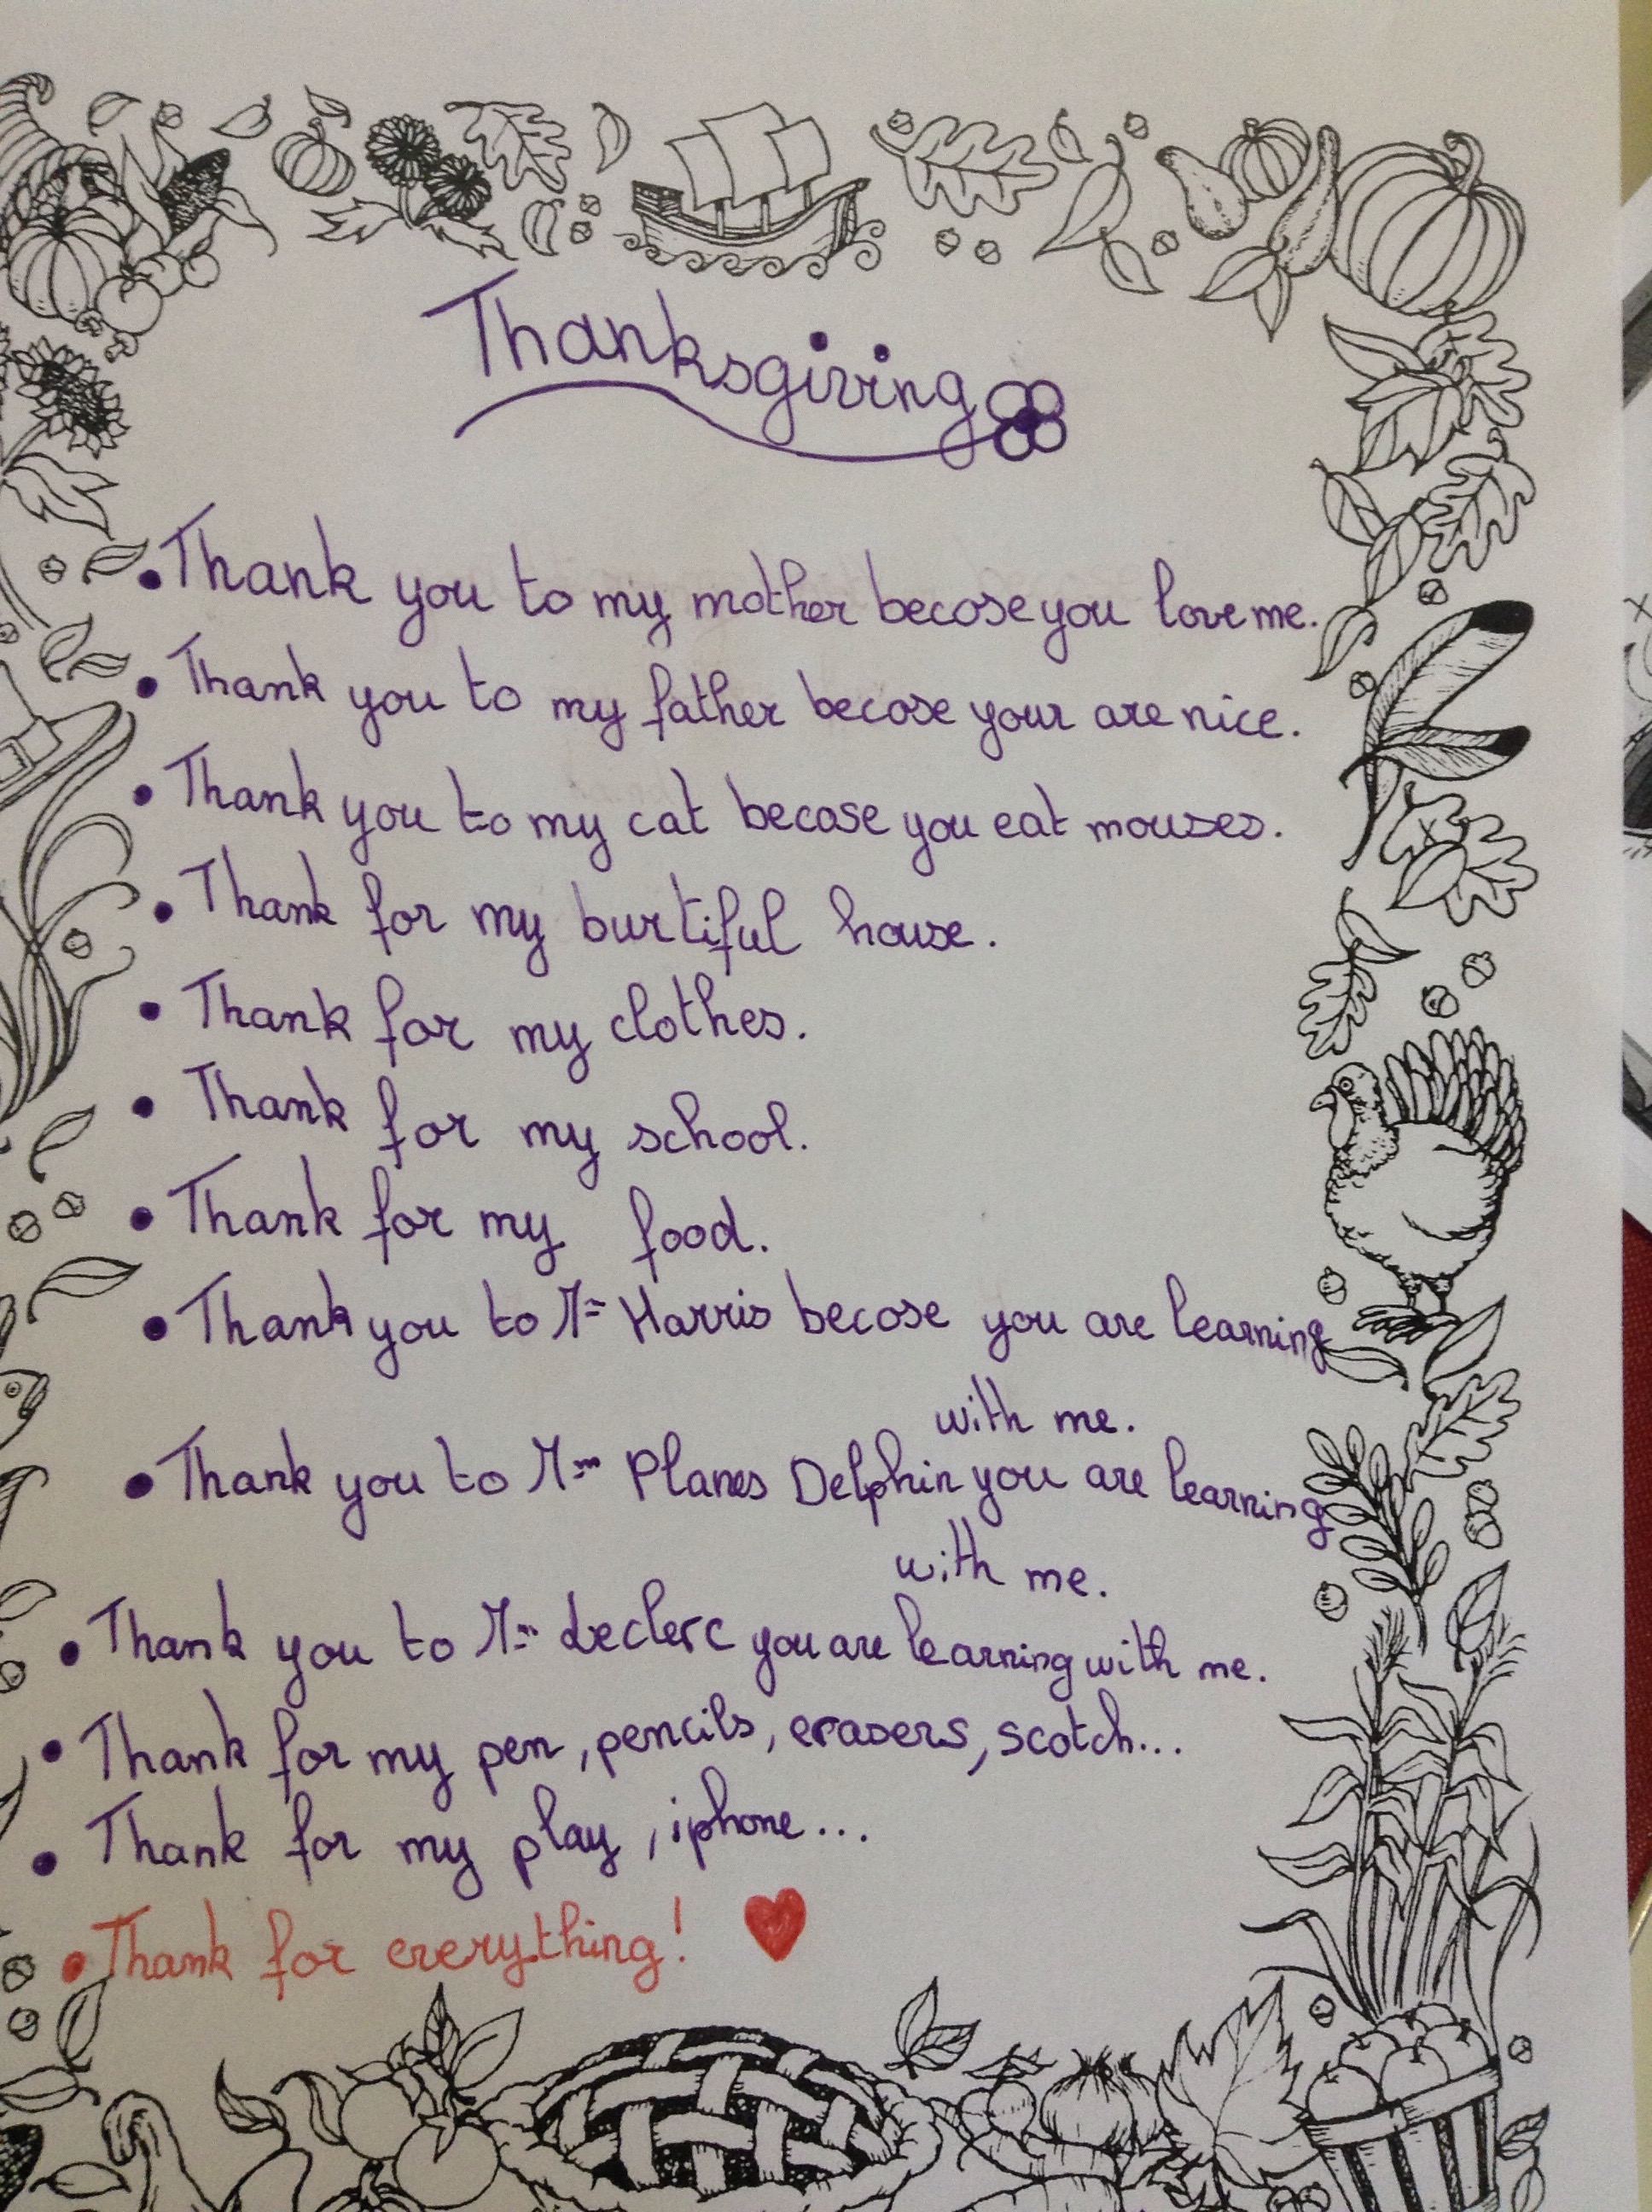 Thanksgiving
• Thank you to my mother becose you love me.
• Thank you to my father becose your are nice.
• Thank you to my cat becose you eat mouses.
• Thank for my burtiful house.
• Thank for my clothes.
• Thank for my school.
• Thank for my food.
• Thank you to Mr Harris becose you are learning
with me.
• Thank you to Mme Planes Delphin you are learning
with me.
• Thank you to Mme Leclerc you are learning with me.
• Thank for my pen, pencils, erasers, scotch...
• Thank for my play, iphone...
• Thank for everything!